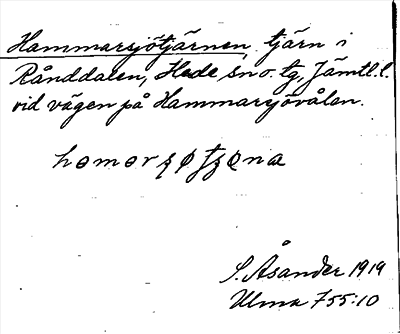 Hammarsjötjärnen, tjärn i
Rånddalen, Hede sn o. tg, Jämtl. l.
vid vägen på Hammarsjövålen.
S. Åsander 1919
Ulma 755:10